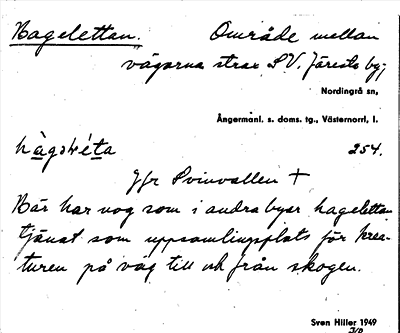 Hagelettan. Område mellan
vägarna strax SV. Järesta by;
Nordingrå sn,
Ångermanl. s. doms. tg., Västernorrl. l.
254.
Jfr Svinvallen +
Här har nog som i andra byar hagelettan
tjänat som uppsamlingsplats för krea-
turen på väg till och från skogen.
Sven Hiller 1949